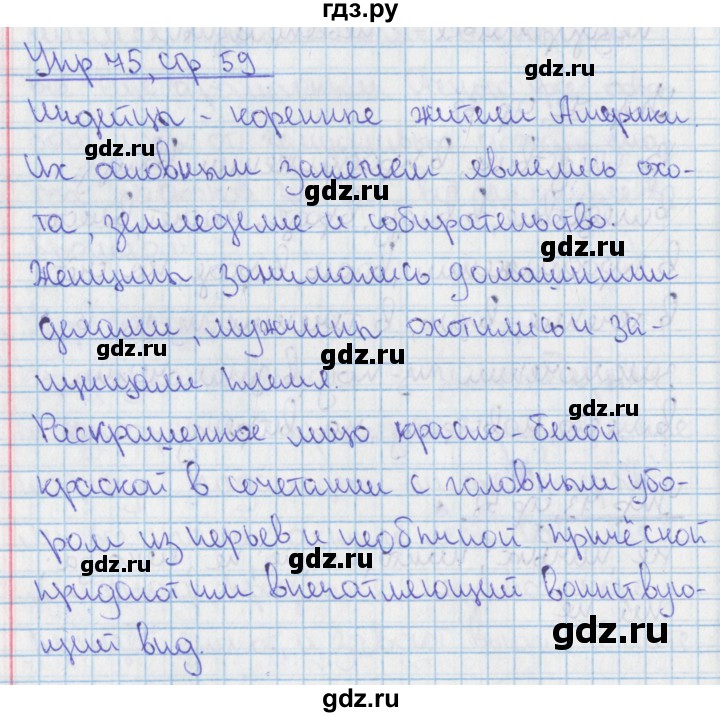 гдз.ру
Упр 75, стр 59
gdz.ru
Индейцы - коренные жители Америки.
gdz.ru
Их основным занятием являлись охо-
gdz.ru
та, земледелие и собирательство.
gdz.ru
Женщины занимались домашними
делами, мужчины охотились и за-
gdz.ru
gdz.ru
щищали племя.
gdz.ru
Раскрашенное лицо красно-белой
краской в сочетании с головным убо-
ром из перьев и необычной причёской
gdz.ru
gdz.ru
придают им впечатляющий воинствую-
gdz.ru
щий вид.
gdz.ru